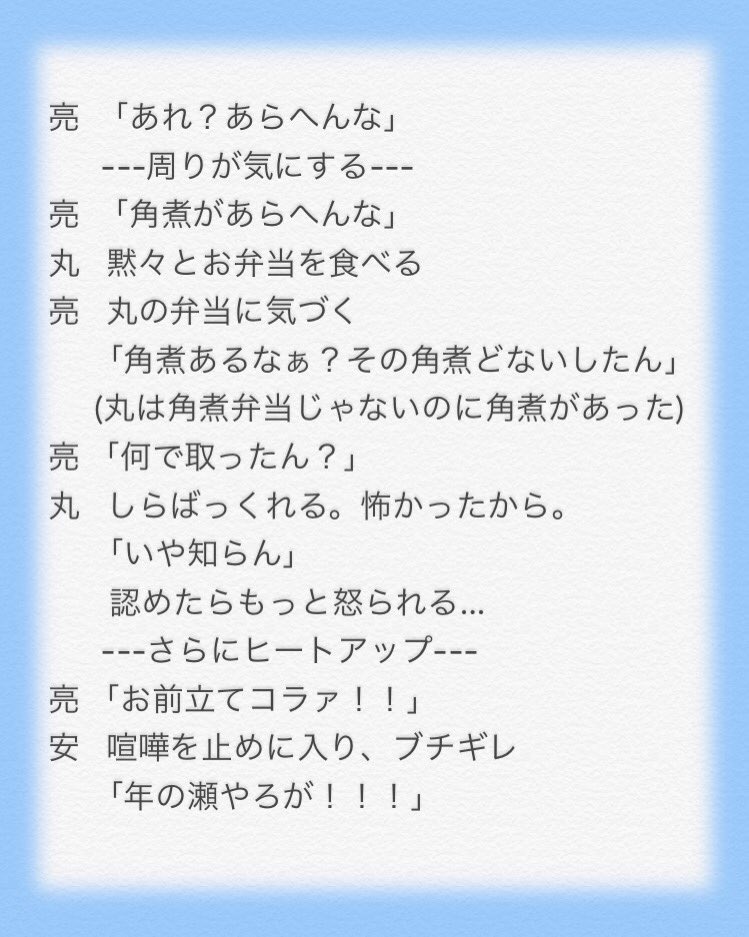 亮 「あれ？あらへんな」
---周りが気にする---
亮 「角煮があらへんな」
丸 黙々とお弁当を食べる
亮 丸の弁当に気づく
「角煮あるなぁ？その角煮どないしたん」
(丸は角煮弁当じゃないのに角煮があった)
亮 「何で取ったん？」
丸 しらばっくれる。怖かったから。
「いや知らん」
認めたらもっと怒られる...
---さらにヒートアップ---
亮 「お前立てコラァ！！」
安 喧嘩を止めに入り、ブチギレ
「年の瀬やろが！！！」